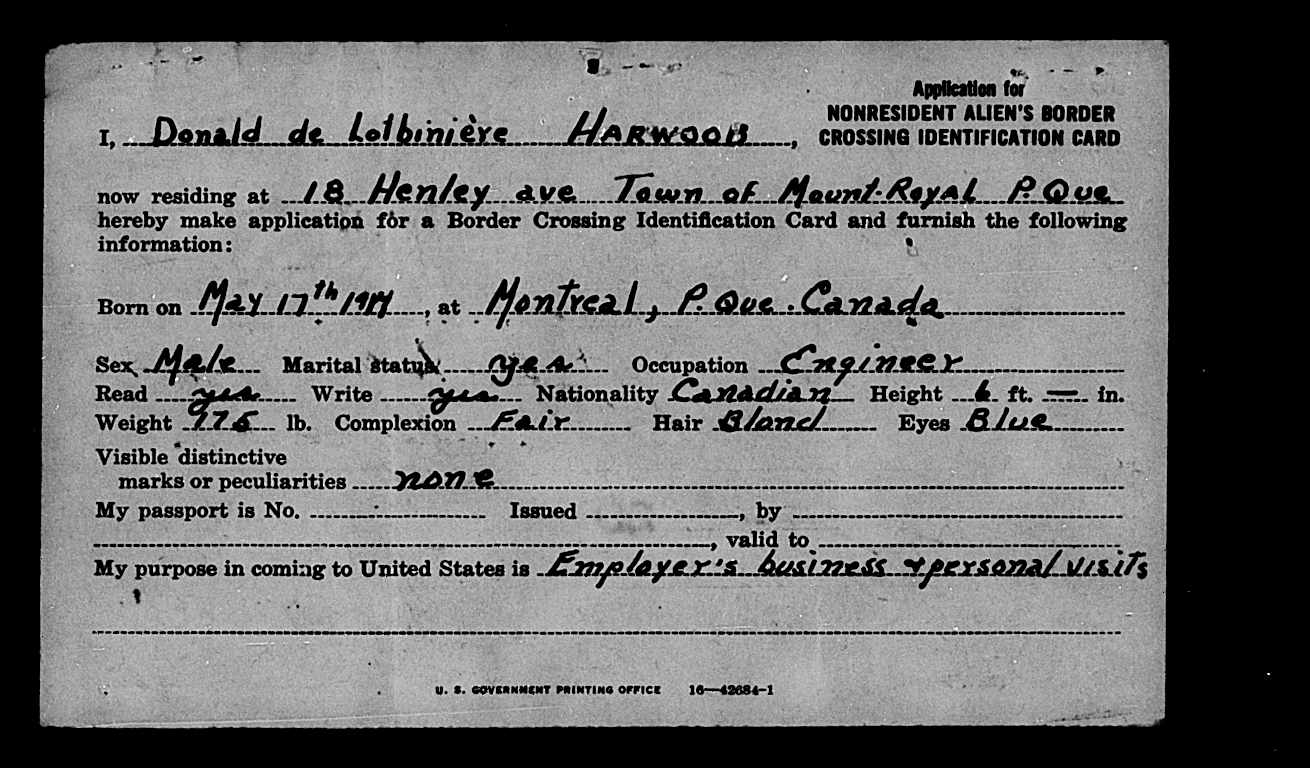 Application for
NONRESIDENT ALIEN'S BORDER
CROSSING IDENTIFICATION CARD
I, Donald de Lotbinière HARWOOD,
now residing at 18 Henley ave Town of Mount-Royal P. Que
hereby make application for a Border Crossing Identification Card and furnish the following
information:
Born on May 17th, at Montreal, P. Que. Canada
Sex Male Marital status yes Occupation Engineer
Read yes Write yes Nationality Canadian Height 6 ft. — in.
Weight 175 lb. Complexion Fair Hair Blond Eyes Blue
Visible distinctive
marks or peculiarities none
My passport is No. Issued , by
, valid to
My purpose in coming to United States is Employer's business & personal visits
U. S. GOVERNMENT PRINTING OFFICE 16—42684-1